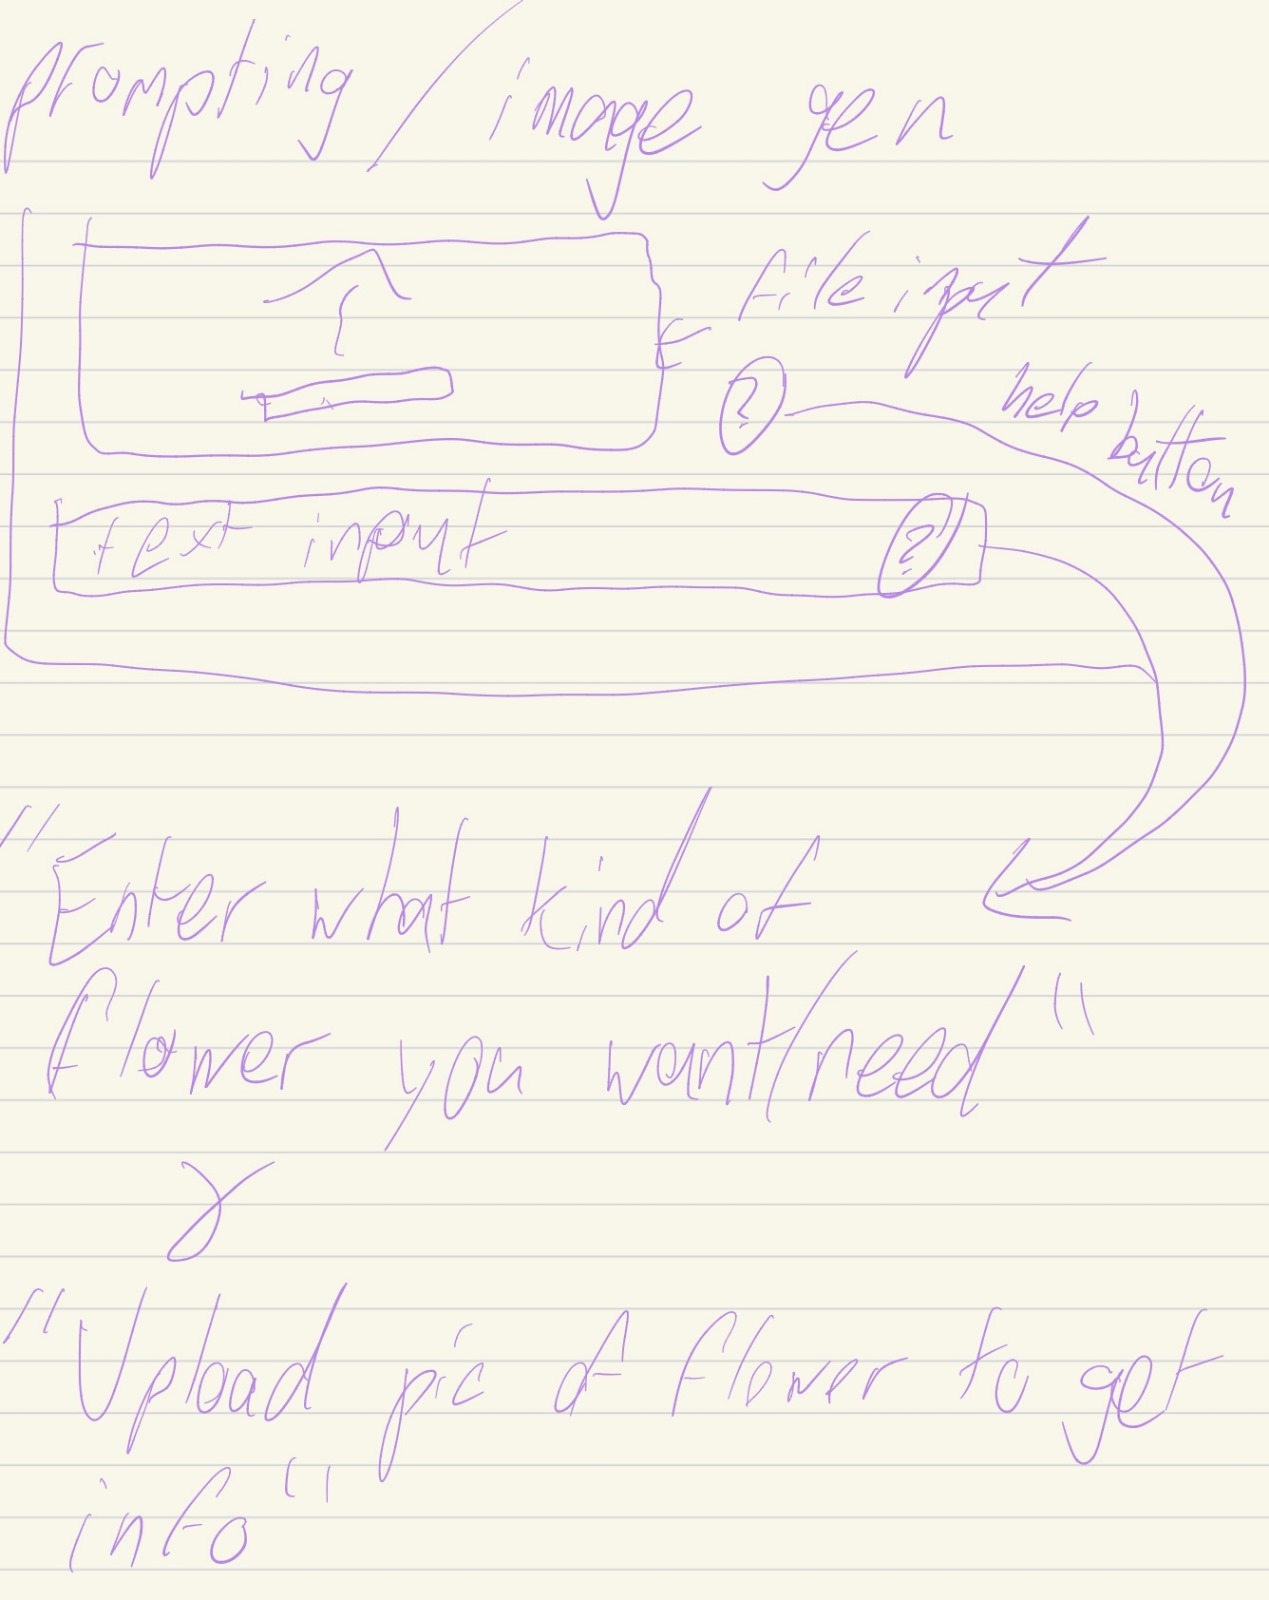 prompting / image gen
file input
?
help
button
text input ?
"Enter what kind of
flower you want/need"
&
"Upload pic of flower to get
info"